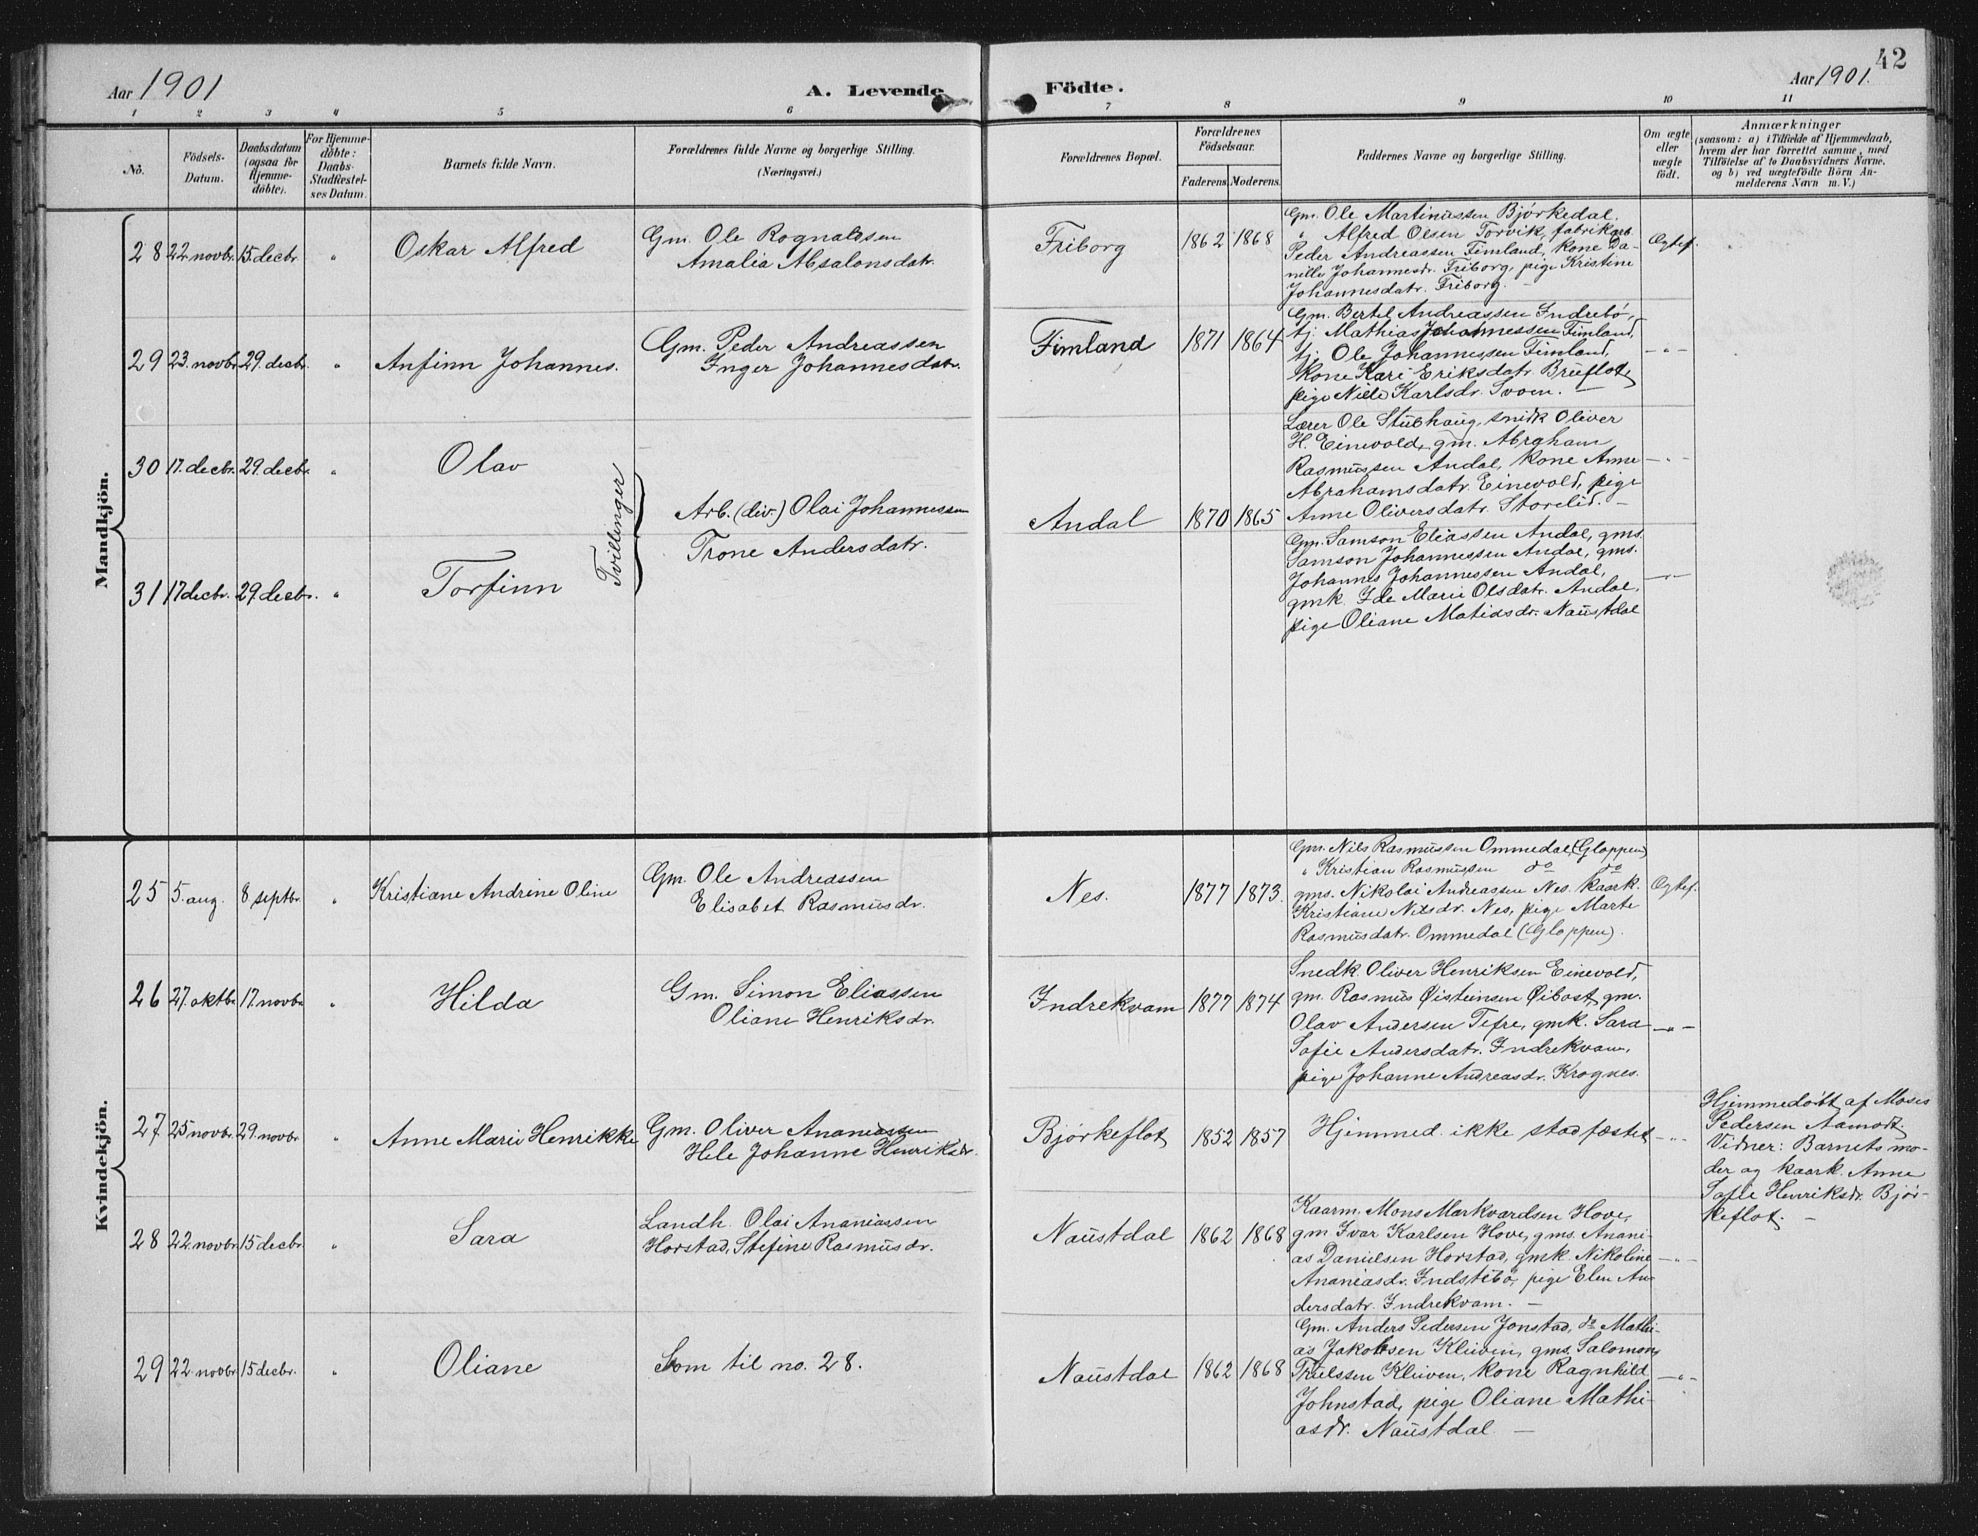 Aar 1901
A. Levende
Födte.
Aar 1901.
42
1 2 3 4 5 6 7 8 9 10 11
No.
Födsels-
Datum.
Daabsdatum
(ogsaa for
Hjemme-
döbte).
For Hjemme-
döbte:
Daabs-
Stadfæstel-
ses Datum.
Barnets fulde Navn.
Forældrenes fulde Navne og borgerlige Stilling.
(Næringsvei.)
Forældrenes Bopæl.
Forældrenes
Födselsaar.
Faderens. Moderens.
Faddernes Navne og borgerlige Stilling.
Om ægte
eller
uægte
födt.
Anmærkninger
(saasom: a) i Tilfælde af Hjemmedaab,
hvem der har forrettet samme, med
Tilföielse af to Daabsvidners Navne,
og b) ved uægtefödte Börn An-
melderens Navn m. V.)
Mandkjön.
28 22 novbr. 15. decbr. " Oskar Alfred
Gm. Ole Rognaldsen
Amalia Absalonsdatr.
Friborg 1862 1868
Gm. Ole Martinussen Bjørkedal.
" Alfred Olsen Torvik, fabrikarb.
Peder Andreassen Fimland, kone Da-
nille Johannesdr. Friborg, pige Kristine
Johannesdatr. Friborg. —
Ægtef.
29 23. novbr. 29. decbr. " Anfinn Johannes.
Gm. Peder Andreassen
Inger Johannesdatr.
Fimland 1871 1864
Gm. Bertel Andreassen Indrebø,
tj. Mathias Johannessen Fimland,
tj. Ole Johannessen Fimland,
kone Kari Eriksdatr. Breflot,
pige Nille Karlsdr. Svoen. —
— " —
30 17. decbr. 29. decbr. " Olav
Tvillinger
Arb. (div.) Olai Johannessen
Trone Andersdatr.
Andal 1870 1865
Lærer Ole Stubhaug, snidk Oliver
H. Einevold, gm. Abraham
Rasmussen Andal, kone Anne
Abrahamsdatr. Einevold, pige
Anne Oliversdatr. Storelid. —
— " —
31 17 decbr. 29 decbr. " Torfinn
Gm. Samson Eliassen Andal, gms.
Samson Johannessen Andal, gms.
Johannes Johannessen Andal,
gmk. Ide Marie Olsdatr. Andal,
pige Oliane Matiasdr. Naustdal
— " —
Kvindekjön.
25 5. aug. 8 septbr. " Kristiane Andrine Oline
Gm. Ole Andreassen
Elisabet Rasmusdr.
Nes. 1877 1873.
Gm. Nils Rasmussen Ommedal, (Gloppen)
" Kristian Rasmussen do do
gms. Nikolai Andreassen Nes. kaark.
Kristiane Nilsdr. Nes, pige Marte
Rasmusdatr. Ommedal (Gloppen).
Ægtef.
26 27. oktbr. 17. novbr. " Hilda
Gm. Simon Eliassen
Oliane Henriksdr.
Indrekvam 1877 1874
Snedk. Oliver Henriksen Einevold,
gm. Rasmus Øisteinsen Øibost, gm.
Olav Andersen Tefre, gmk. Sara
Sofie Andersdatr. Indrekvam,
pige Johanne Andreasdr. Krognes.
— " —
27 25 novbr. 29. novbr. " Anne Marie Henrikke
Gm. Oliver Ananiassen
Hele Johanne Henriksdr.
Bjørkeflot 1852 1857
Hjemmed. ikke stadfæstet
— " —
Hjemmedøbt af Moses
Pedersen Aamodt.
Vidner: Barnets mo-
der og kaark. Anne
Sofie Henriksdr. Bjør-
keflot. —
28 22. novbr. 15 decbr. " Sara
Landh. Olai Ananiassen
Horstad, Stefine Rasmusdr.
Naustdal 1862 1868
Kaarm. Mons Markvardsen Hove,
gm. Ivar Karlsen Hove, gms. Anani-
as Danielsen Horstad, gmk. Nikoline
Ananiasdr. Indstebø, pige Elen An-
dersdatr. Indrekvam. —
— " —
29 22 novbr. 15 decbr. " Oliane
Som til no. 28.
Naustdal 1862 1868
Gm. Anders Pedersen Jonstad, do Mathi-
as Jakobsen Kleiven, gms. Salomon
Trulssen Kleiven, kone Ragnhild
Johnstad, pige Oliane Mathi-
asdr. Naustdal —
— " —